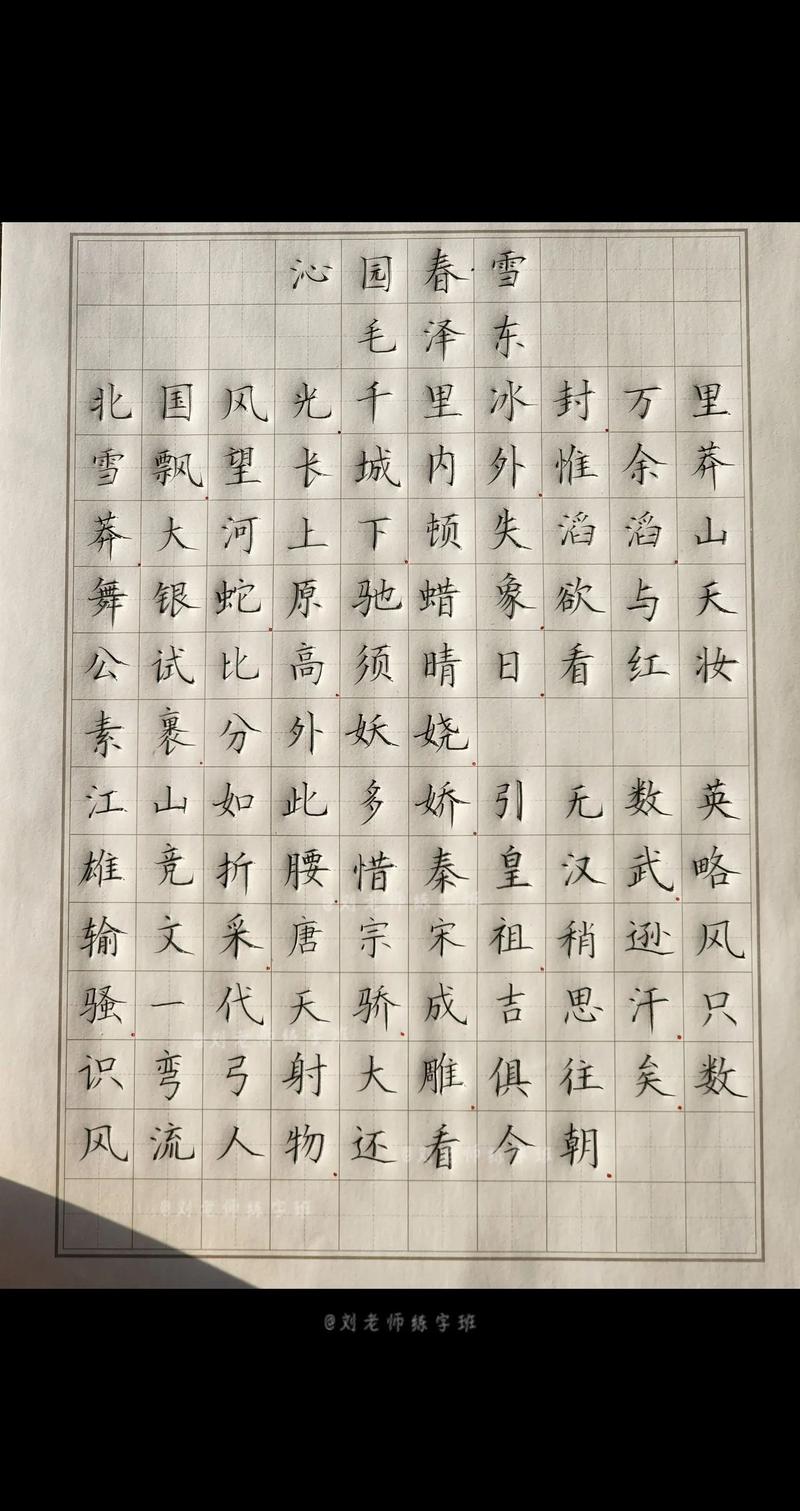 沁园春·雪
毛泽东
北国风光千里冰封万里
雪飘望长城内外惟余莽
莽大河上下顿失滔滔山
舞银蛇原驰蜡象欲与天
公试比高须晴日看红妆
素裹分外妖娆
江山如此多娇引无数英
雄竞折腰惜秦皇汉武略
输文采唐宗宋祖稍逊风
骚一代天骄成吉思汗只
识弯弓射大雕俱往矣数
风流人物还看今朝
@刘老师练字班
@刘老师练字班